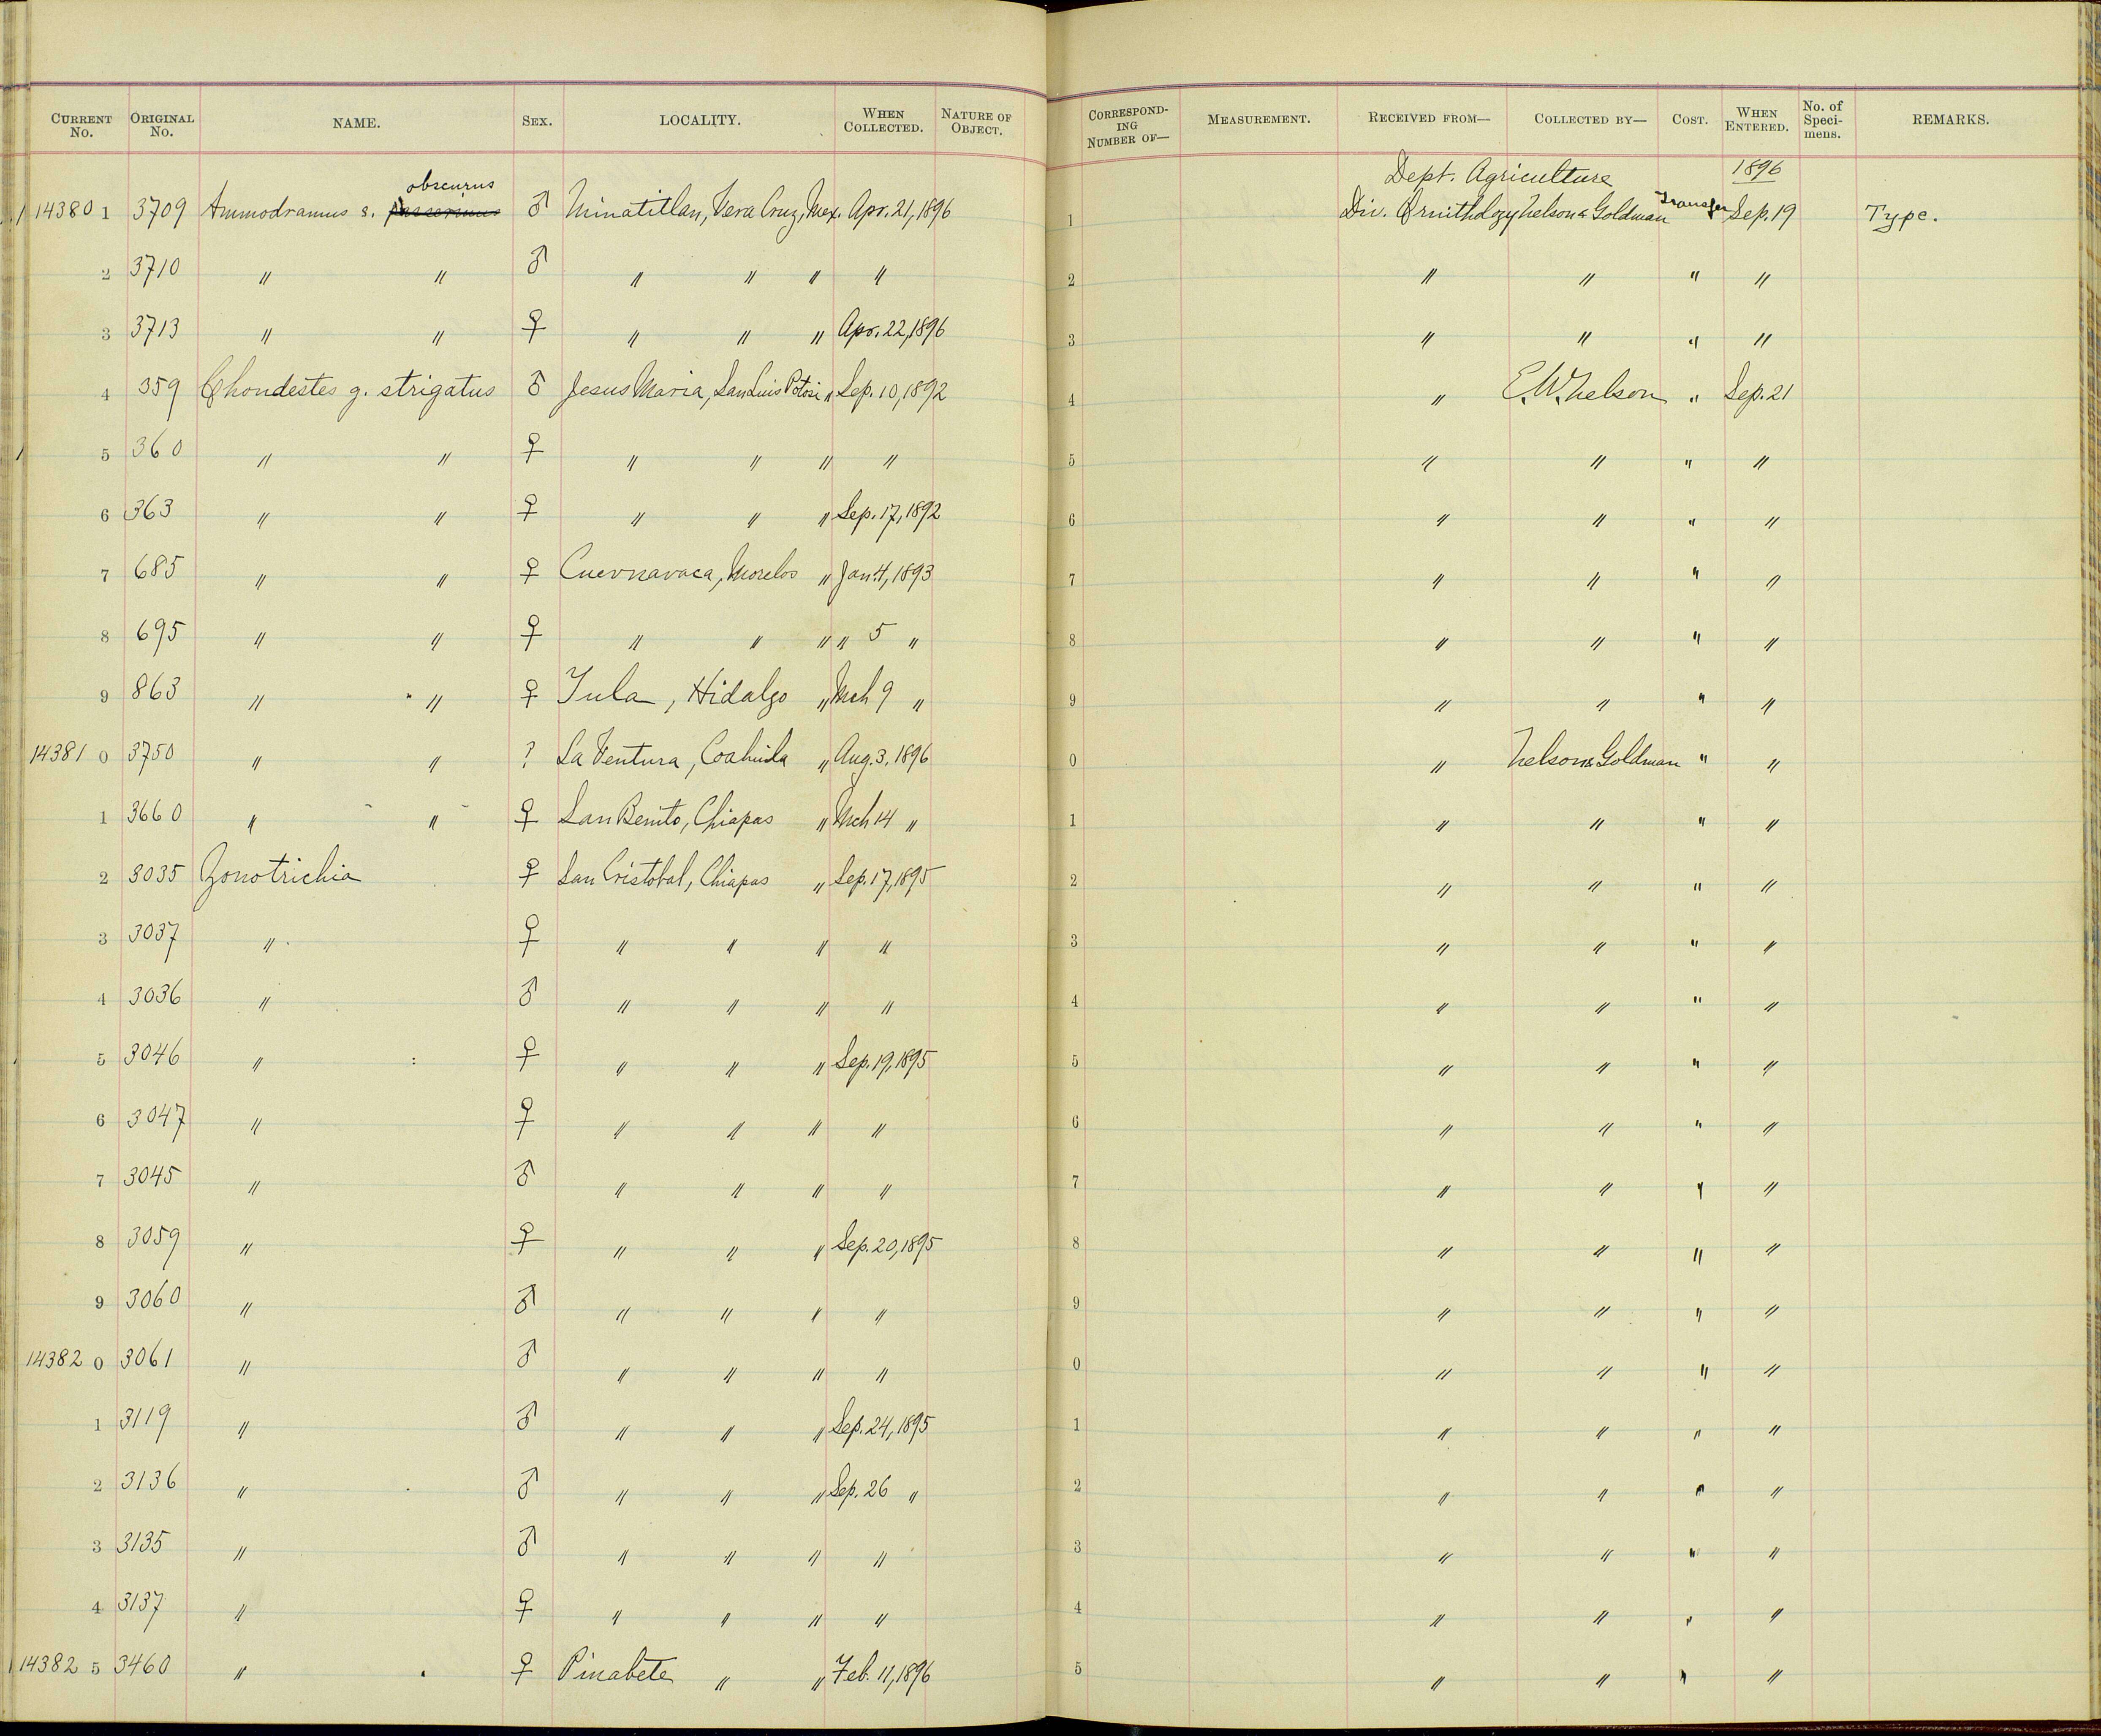 CURRENT No. ORIGINAL No. NAME. SEX. LOCALITY. WHEN COLLECTED. NATURE OF OBJECT. CORRESPONDING NUMBER OF— MEASUREMENT. RECEIVED FROM— COLLECTED BY— COST. WHEN ENTERED. No. of Specimens. REMARKS.
Dept. Agriculture 1896
obscurus
14380 1 3709 Ammodramus s. passerinus ♂ Minatitlan, Vera Cruz, Mex. Apr. 21, 1896 1 Div. Ornithology Nelson & Goldman Transfer Sep. 19 Type.
2 3710 " " ♂ " " " " 2 " " " "
3 3713 " " ♀ " " " Apr. 22, 1896 3 " " " "
4 359 Chondestes g. strigatus ♂ Jesus Maria, San Luis Potosi " Sep. 10, 1892 4 " E. W. Nelson " Sep. 21
5 360 " " ♀ " " " " 5 " " " "
6 363 " " ♀ " " " Sep. 17, 1892 6 " " " "
7 685 " " ♀ Cuernavaca, Morelos " Jan. 4, 1893 7 " " " "
8 695 " " ♀ " " " " 5 " 8 " " " "
9 863 " " ♀ Tula, Hidalgo " Mch 9 " 9 " " " "
14381 0 3750 " " ? La Ventura, Coahuila " Aug. 3, 1896 0 " Nelson & Goldman " "
1 3660 " " ♀ San Benito, Chiapas " Mch 14 " 1 " " " "
2 3035 Zonotrichia ♀ San Cristobal, Chiapas " Sep. 17, 1895 2 " " " "
3 3037 " ♀ " " " " 3 " " " "
4 3036 " ♂ " " " " 4 " " " "
5 3046 " ♀ " " " Sep. 19, 1895 5 " " " "
6 3047 " ♀ " " " " 6 " " " "
7 3045 " ♂ " " " " 7 " " " "
8 3059 " ♀ " " " Sep. 20, 1895 8 " " " "
9 3060 " ♂ " " " " 9 " " " "
14382 0 3061 " ♂ " " " " 0 " " " "
1 3119 " ♂ " " " Sep. 24, 1895 1 " " " "
2 3136 " ♂ " " " Sep. 26 " 2 " " " "
3 3135 " ♂ " " " " 3 " " " "
4 3137 " ♀ " " " " 4 " " " "
14382 5 3460 " ♀ Pinabete " " Feb. 11, 1896 5 " " " "